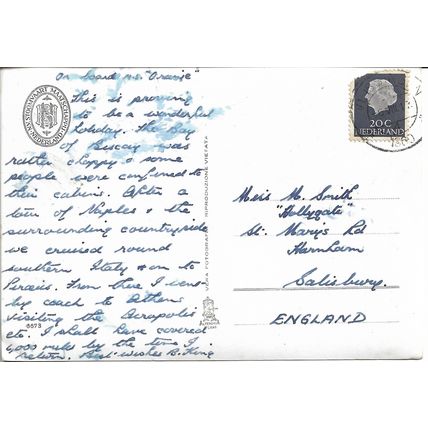 On board m.s. "Oranje"
This is proving
to be a wonderful
holiday. The Bay
of Biscay was
rather choppy & some
people were confined to
their cabins. After a
tour of Naples & the
surrounding countryside
we cruised round
southern Italy & on to
Piraeus. From there I went
by coach to Athens
visiting the Acropolis
etc. I shall have covered
6,000 miles by the time I
return. Best wishes B. King
6573
STOOMVAART MAATSCHAPPIJ NEDERLAND
VERA FOTOGRAFIA - RIPRODUZIONE VIETATA
20 C
NEDERLAND
Miss M. Smith
"Hollygate"
St. Mary's Rd
Harnham
Salisbury.
ENGLAND